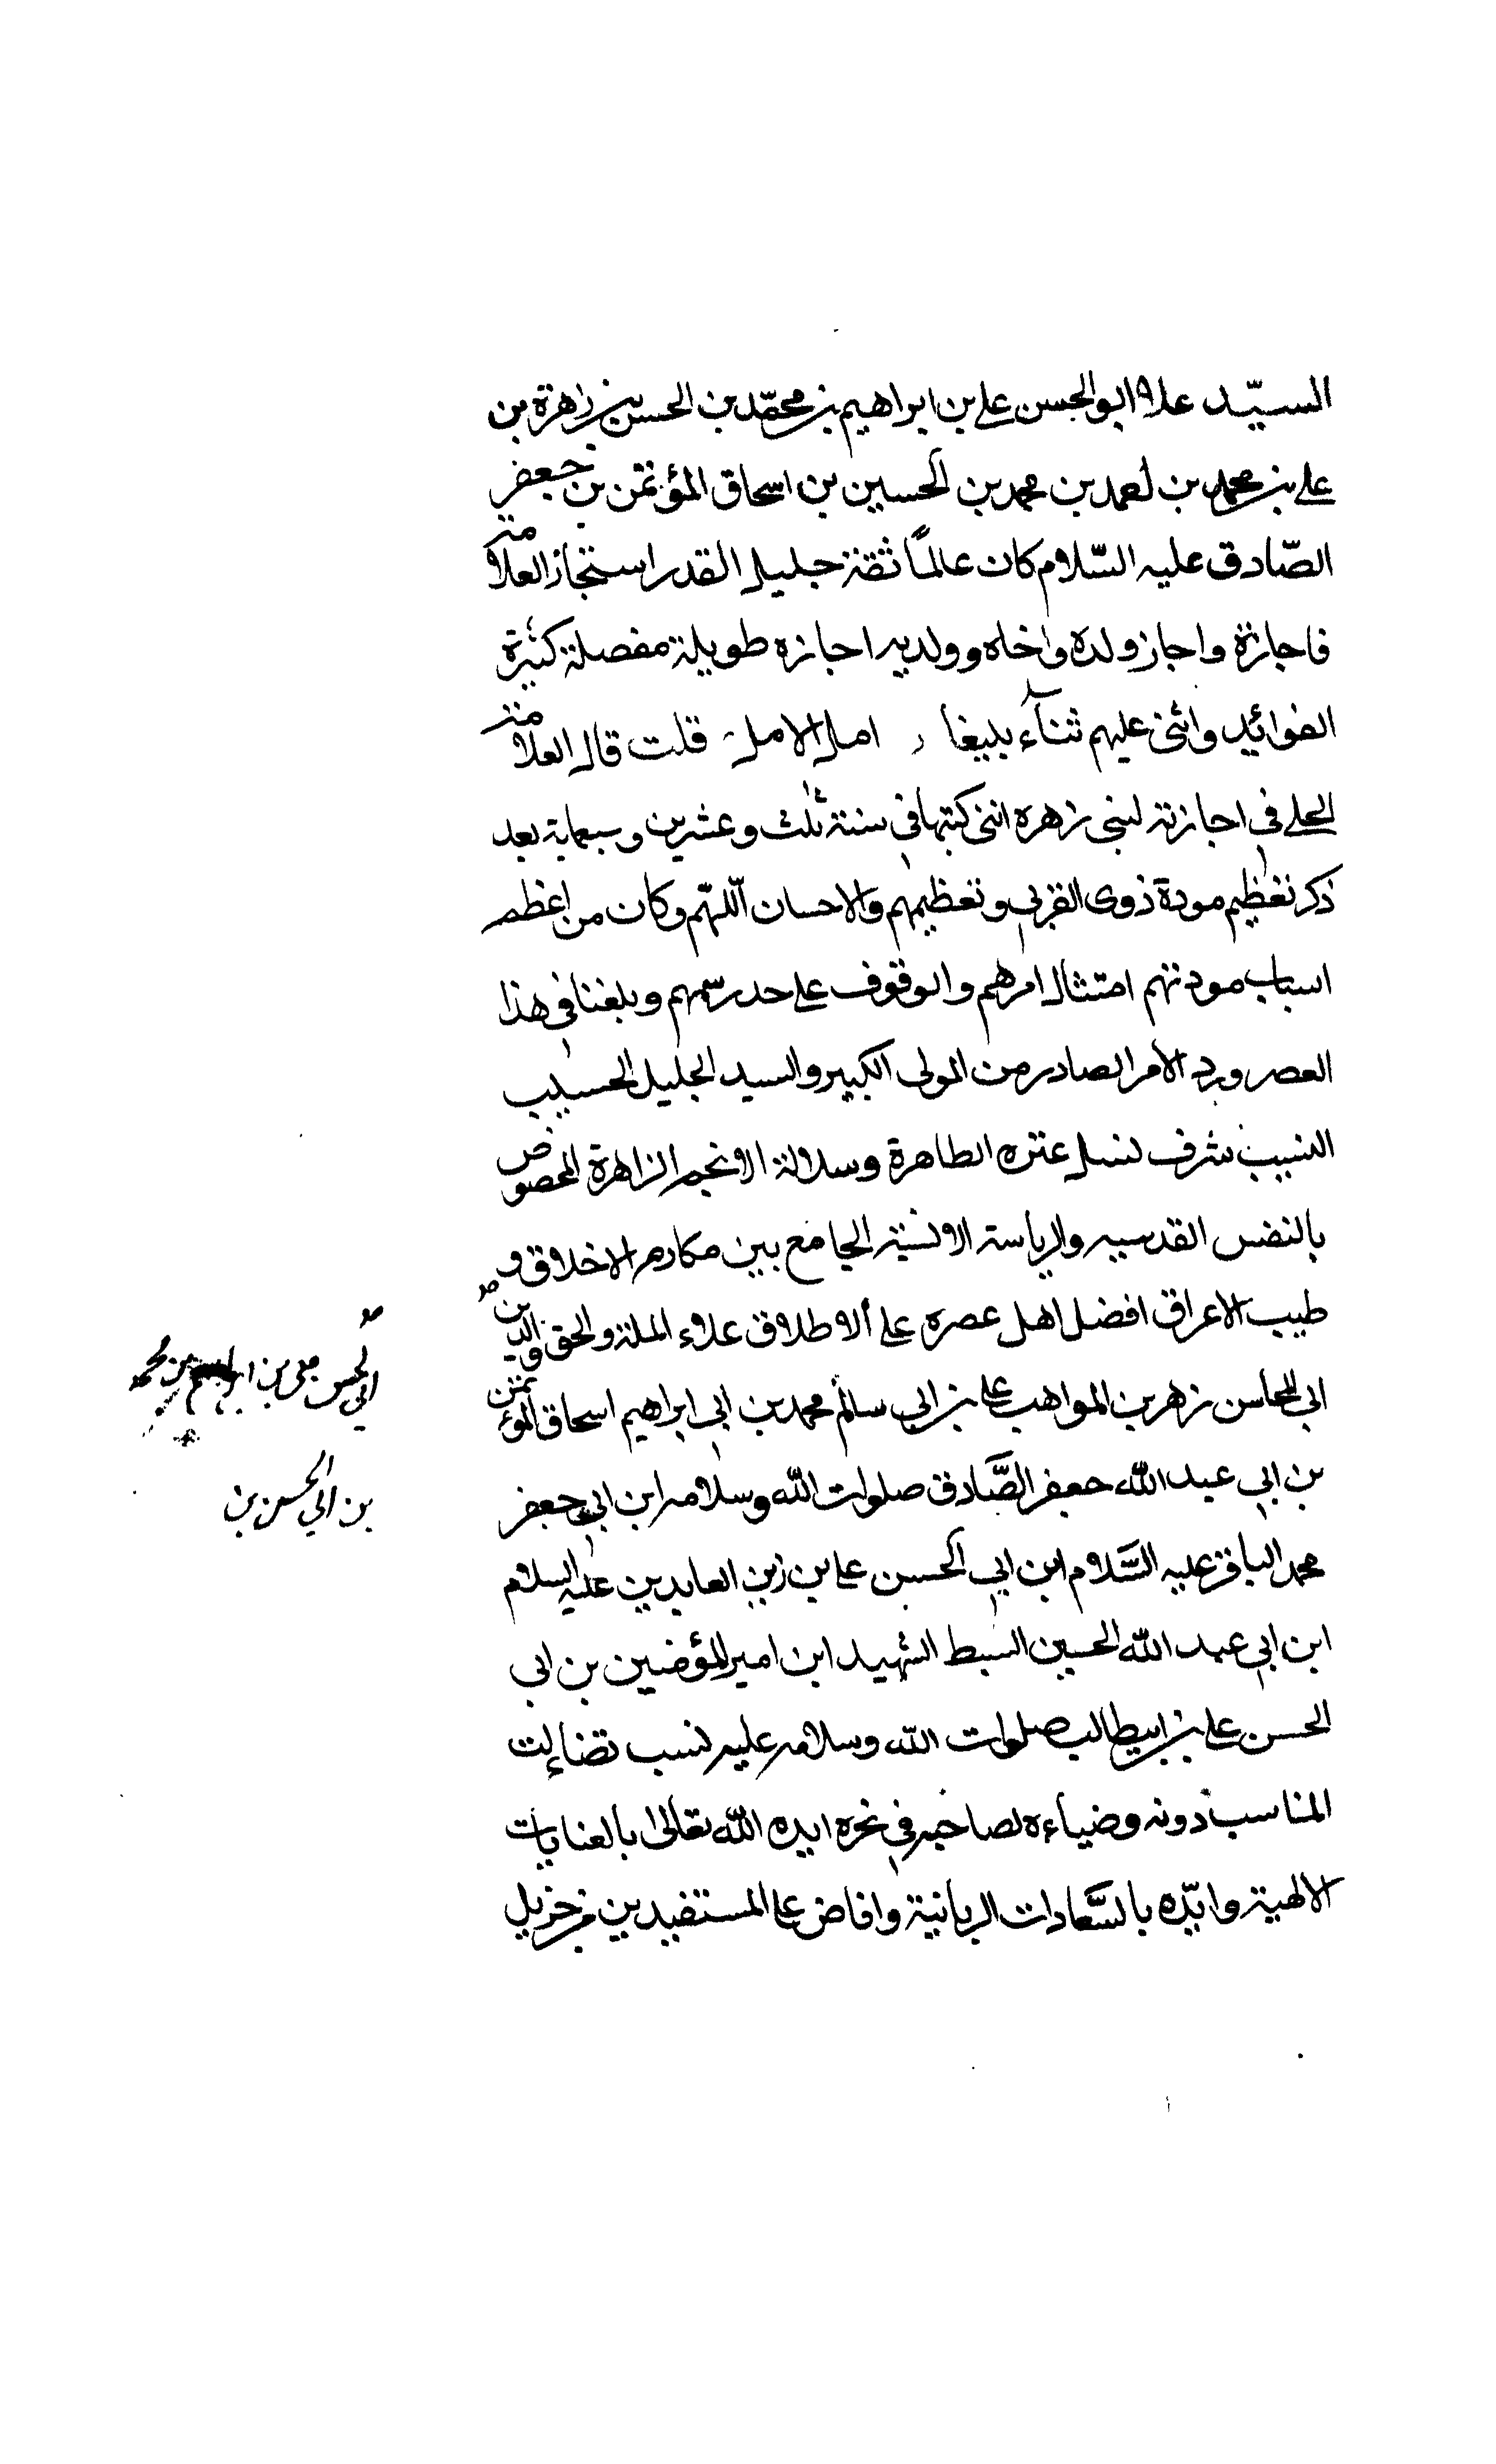 السيّد علاء ابو الحسن علي بن ابراهيم بن محمّد بن الحسن بن زهرة بن
علي بن محمد بن احمد بن محمد بن الحسين بن اسحاق المؤتمن بن جعفر
الصّادق عليه السّلام كان عالماً ثقة جليل القدر استجاز العلامة
فاجازه واجاز ولده واخاه وولديه اجازه طويلة مفصلة كثيرة
الفوائد واثنى عليهم ثنآء بليغا امل الامل قلت قال العلامة
الحلي في اجازته لبني زهره انني كتبها في سنة ثلث وعشرين وسبعماية بعد
ذكر تعظيم مودة ذوى القربى وتعظيمهم والاحسان اللّهم وكان من اعظم
اسباب مودتهم امتثال امرهم والوقوف على حد رسمهم وبلغنا في هذا
العصر ورد الامر الصادر من المولى الكبير والسيد الجليل الحسيب
النسيب شرف نسل عتره الطاهرة وسلالة الانجم الزاهرة المخصوص
بالنفس القدسيه والرياسة الانسية الجامع بين مكارم الاخلاق و
طيب الاعراق افضل اهل عصره على الاطلاق علاء الملة والحق والدين
ابى المحاسن زهر بن المواهب علي بن ابي سالم محمد بن ابى ابراهيم اسحاق المؤتمن
بن ابي عبد الله جعفر الصَّادق صلوات الله وسلامه ابن ابي جعفر
محمد الباقر عليه السَّلام ابن ابي الحسن علي بن زين العابدين عليه السلام
ابن ابي عبد الله الحسين السبط الشهيد ابن امير المؤمنين بن ابى
الحسن علي بن ابيطالب صلوات الله وسلامه عليه نسب تضاءلت
المناسب دونه وضياءه لصاحبه في نحره ايده الله تعالى بالعنايات
الالهية وايّده بالسَّعادات الربانية وافاض على المستفيدين من جزيل
ابي الحسن علي بن ابراهيم بن محمد
بن ابي الحسن بن